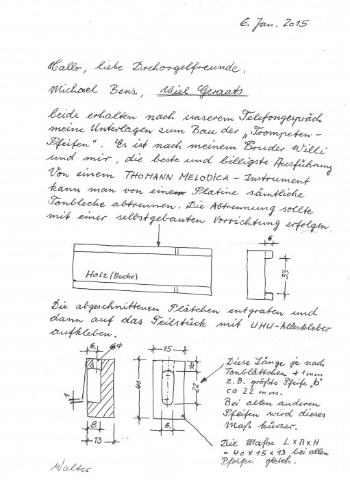 6. Jan. 2015
Hallo, liebe Drehorgelfreunde.
Michael Bens, Wiel Geraats
beide erhalten nach unserem Telefongespräch
meine Unterlagen zum Bau der „Trompeten-
Pfeifen". Es ist nach meinem Brieder Willi
und mir, die beste und billigste Ausführung
Von einem THOMANN MELODICA-Instrument
kann man von einem Platine sämtliche
Tonbleche abtrennen. Die Abtrennung sollte
mit einer selbstgebauten Vorrichtung erfolgen
6
HOLZ (Buche)
33
Die abgeschnittenen Plätchen entgraten und
dann auf das Teilstück mit UHU-Alleskleber
aufkleben.
6
15
40
22
1
8
13
Diese Länge je nach
Tonblättchen + 1mm
z.B. größte Pfeife „b"
ca 22 mm.
Bei allen anderen
Pfeifen wird dieses
Maß kürzer.
Die Maße L x B x H
= 40 x 15 x 13 bei allen
Pfeifen gleich.
Walter